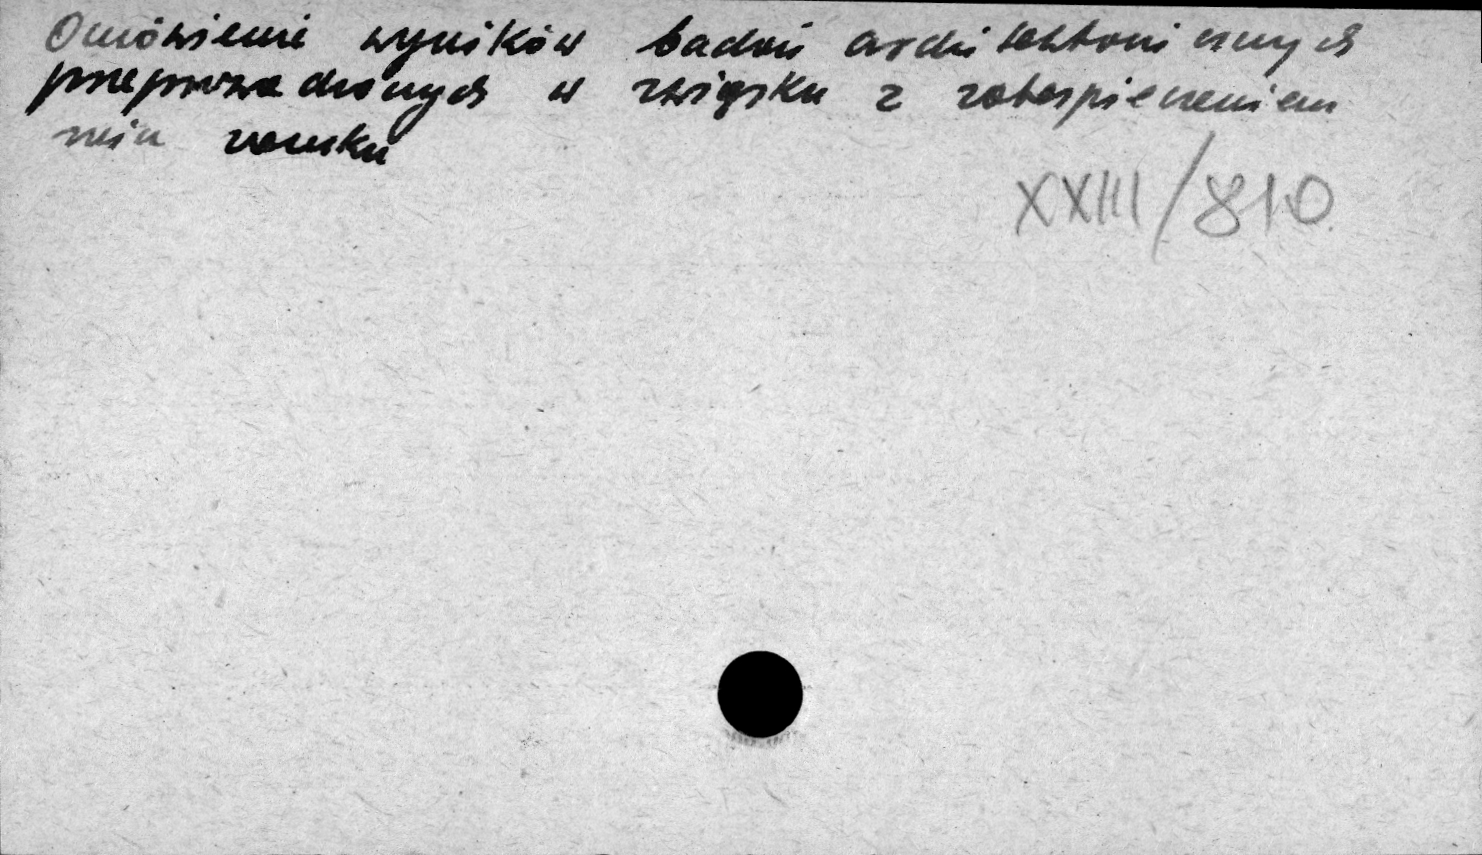 Omówienie wyników badań architektonicznych
przeprowadzonych w związku z zabezpieczeniem
ruin zamku
XXIII/810